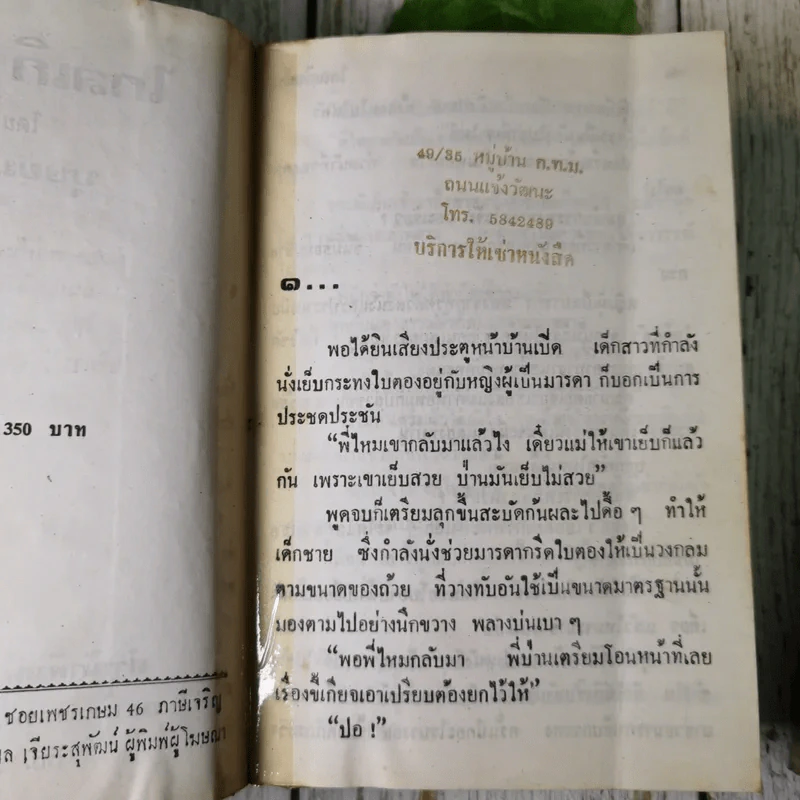 350 บาท
ซอยเพชรเกษม 46 ภาษีเจริญ
เจียระสุพัฒน์ ผู้พิมพ์ผู้โฆษณา
49/35 หมู่บ้าน ก.ท.ม.
ถนนแจ้งวัฒนะ
โทร. 5842489
บริการให้เช่าหนังสือ
๑...
พอได้ยินเสียงประตูหน้าบ้านเปิด เด็กสาวที่กำลัง
นั่งเย็บกระทงใบตองอยู่กับหญิงผู้เป็นมารดา ก็บอกเป็นการ
ประชดประชัน
“พี่ไหมเขากลับมาแล้วไง เดี๋ยวแม่ให้เขาเย็บก็แล้ว
กัน เพราะเขาเย็บสวย ป่านมันเย็บไม่สวย”
พูดจบก็เตรียมลุกขึ้นสะบัดก้นผละไปดื้อ ๆ ทำให้
เด็กชาย ซึ่งกำลังนั่งช่วยมารดากรีดใบตองให้เป็นวงกลม
ตามขนาดของถ้วย ที่วางทับอันใช้เป็นขนาดมาตรฐานนั้น
มองตามไปอย่างนึกขวาง พลางบ่นเบา ๆ
“พอพี่ไหมกลับมา พี่ป่านเตรียมโอนหน้าที่เลย
เรื่องขี้เกียจเอาเปรียบต้องยกไว้ให้”
“ปอ !”